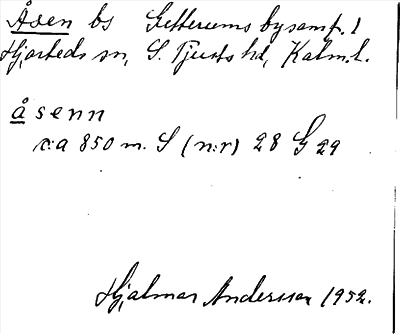 Åsen bs Getterums bysamf. 1
Hjorteds sn, S. Tjusts hd, Kalm. l.
åsenn
c:a 850 m. S (n:r) 28 G 29
Hjalmar Andersson 1952.